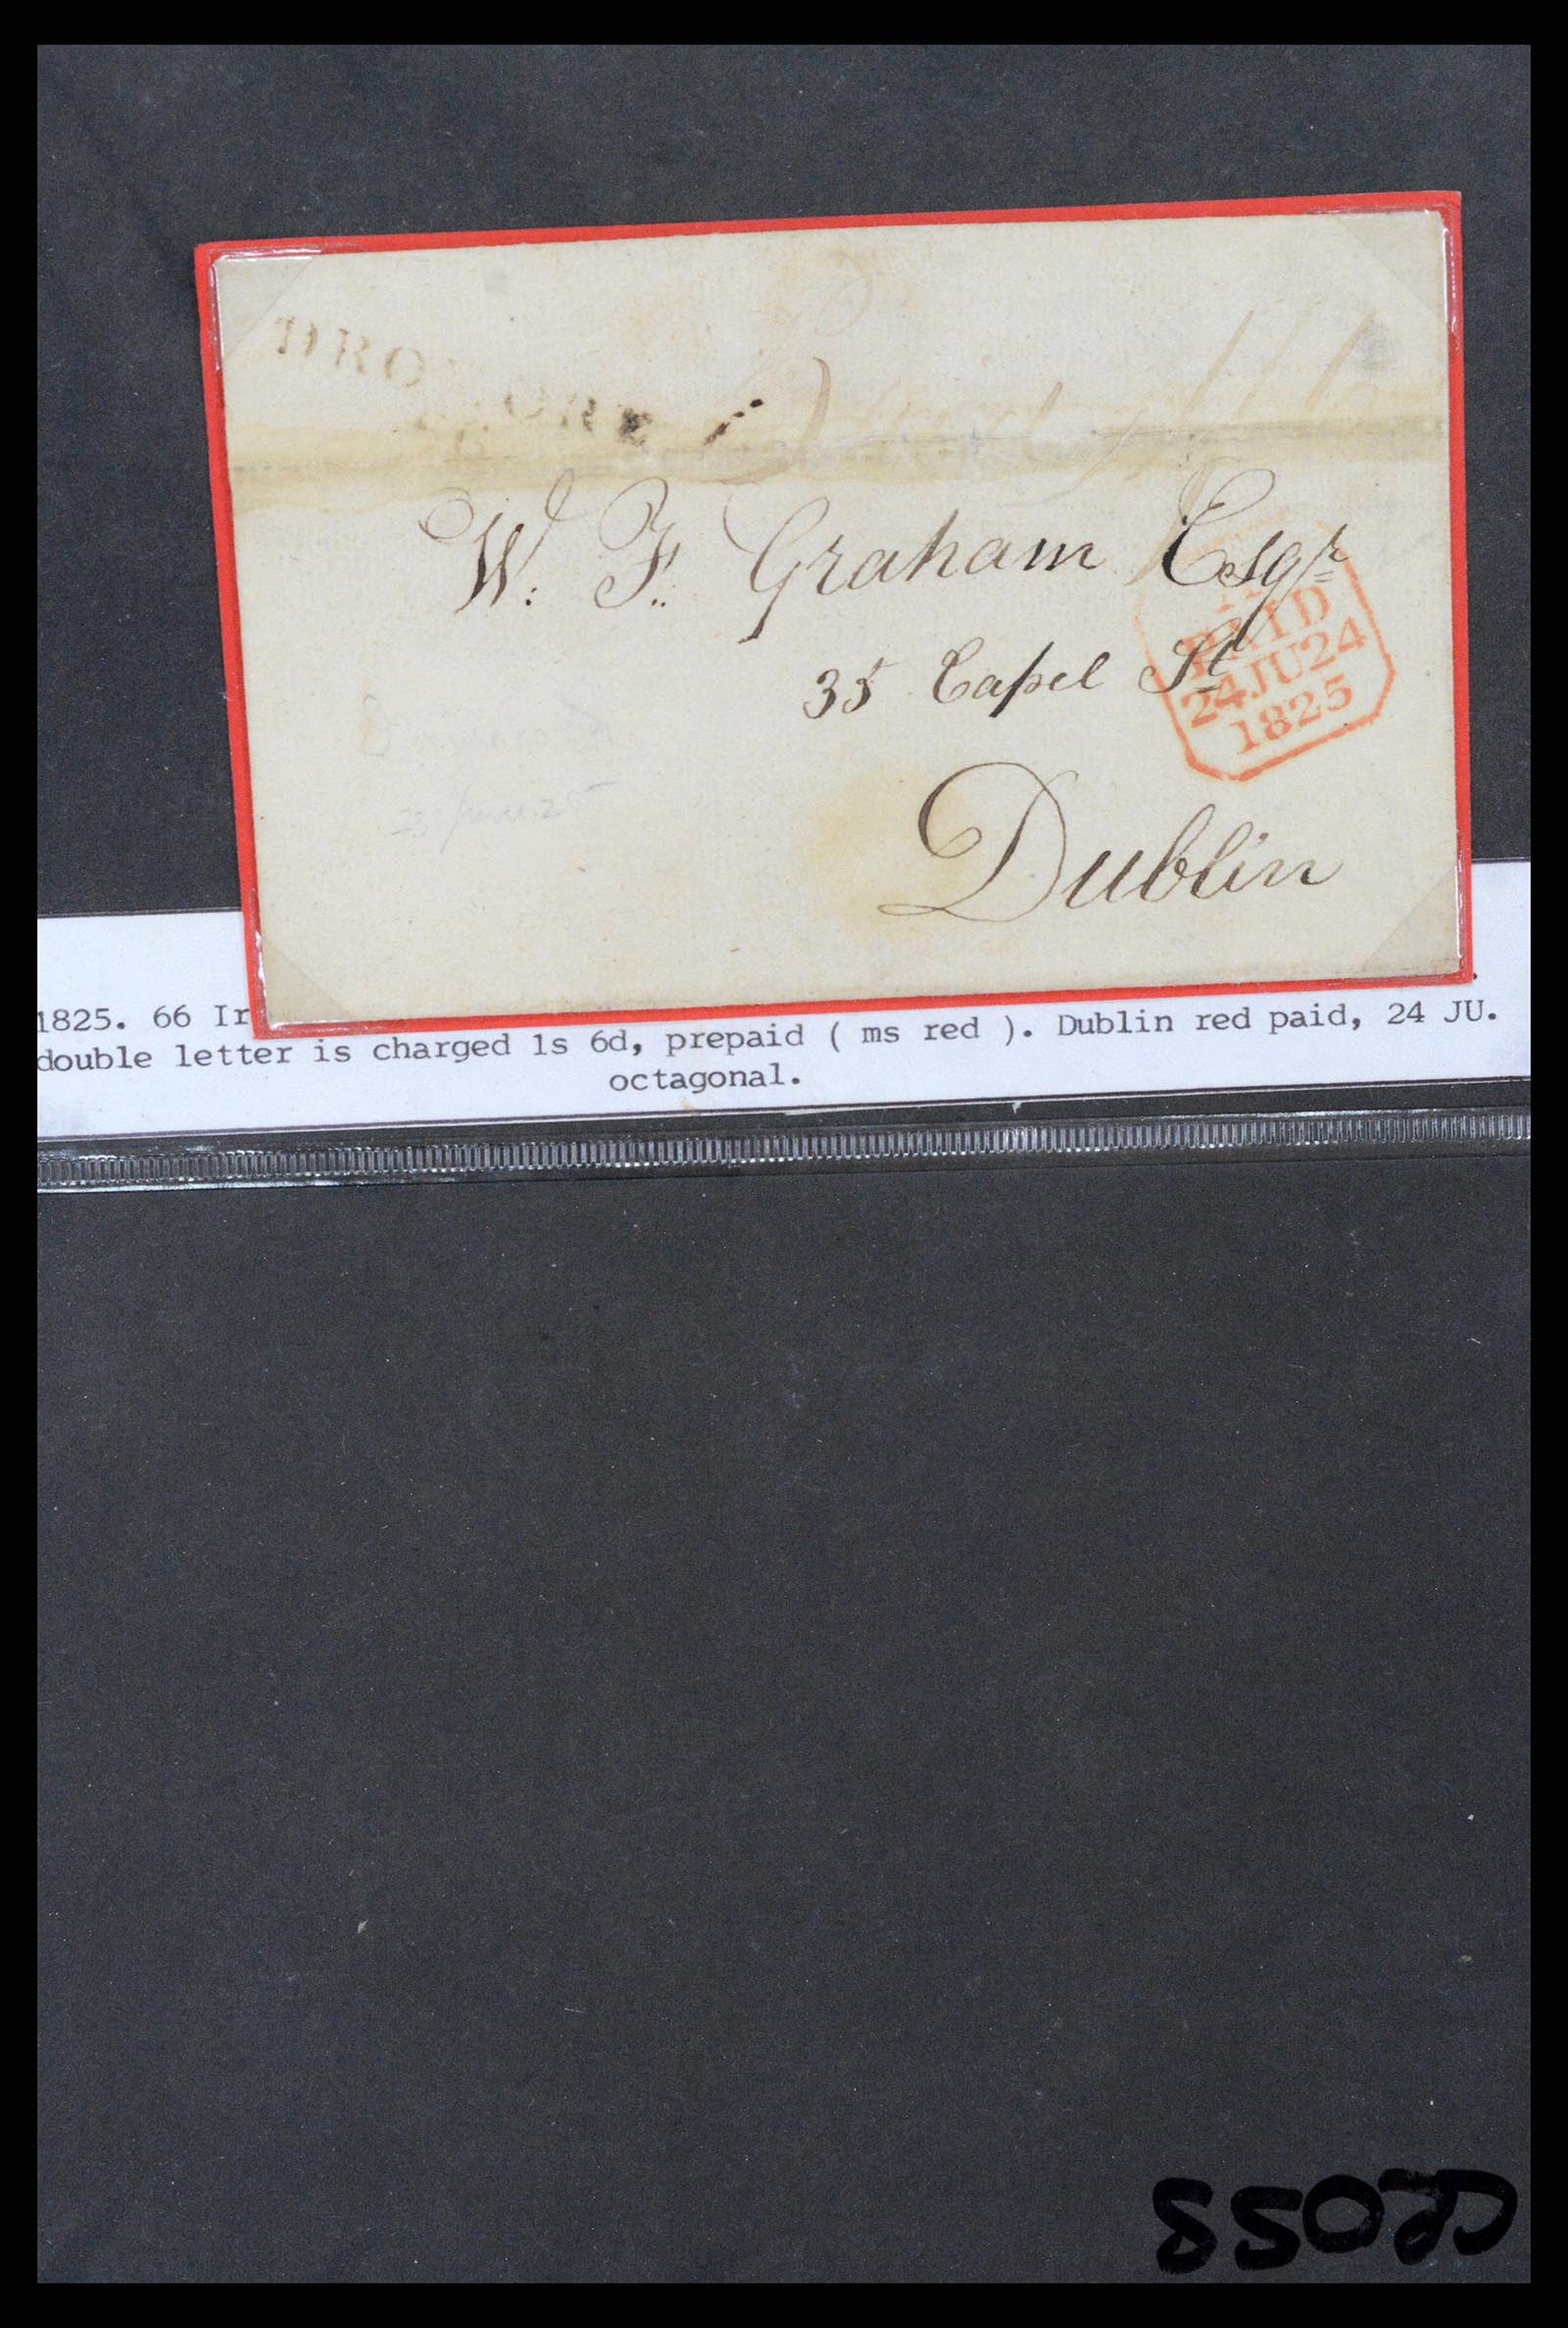 Paid 1/6
W: F: Graham Esqr
35 Capel St
PAID
24JU24
1825
Dublin
23 June 25
1825. 66 Ir
double letter is charged 1s 6d, prepaid ( ms red ). Dublin red paid, 24 JU.
octagonal.